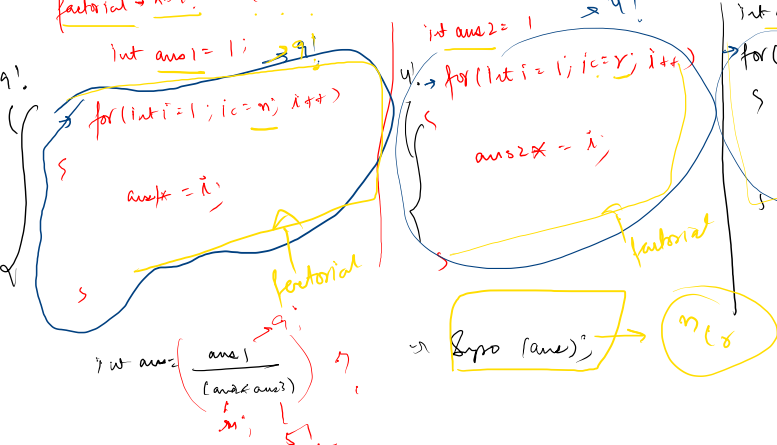 factorial
int ans1 = 1;
9!
9!
for(int i = 1; i <= n; i++)
ans1* = i;
factorial
int ans2 = 1
4!
4!
for(int i = 1; i <= r; i++)
ans2* = i;
factorial
int
for(
int ans=
ans1
9!
(ans2* ans3)
5!
Sypo (ans);
ncr